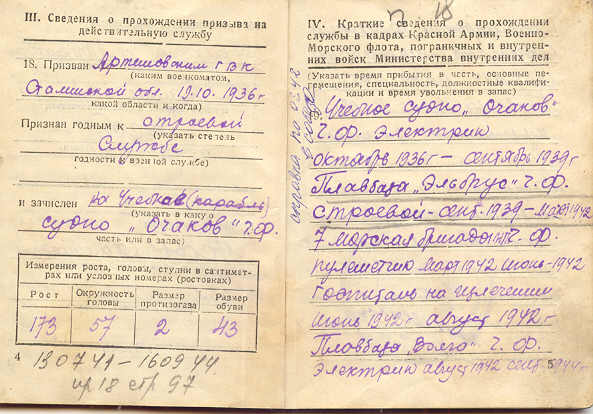 III. Сведения о прохождении призыва на
действительную службу
18. Призван Артемовским ГВК
(каким военкоматом,
Сталинской обл. 19.10. 1936 г
какой области и когда)
Признан годным к строевой
(указать степень
службе
годности к военной службе)
и зачислен на Учебное (корабль)
(указать в какую
судно „Очаков" Ч.Ф.
часть или в запас)
Измерения роста, головы, ступни в сантимет-
рах или условных номерах (ростовках)
Рост Окружность головы Размер противогаза Размер обуви
173 57 2 43
4
130741 - 160944
пр 18 стр 97
18
IV. Краткие сведения о прохождении
службы в кадрах Красной Армии, Военно-
Морского флота, пограничных и внутрен-
них войск Министерства внутренних дел
(Указать время прибытия в часть, основные пе-
ремещения, специальность, должностные квалифи-
кации и время увольнения в запас)
Учебное судно „Очаков"
Ч.Ф. Электрик
октябрь 1936 г - сентябрь 1939 г
Плавбаза „Эльбрус" Ч.Ф.
строевой - сент. 1939 - март 1942
7 морская бригада Ч.Ф.
пулеметчик март 1942 июнь - 1942
Госпиталь на излечении
июнь 1942 г август 1942 г
Плавбаза „Волга" Ч.Ф.
Электрик август 1942 сент. 1944 г
5